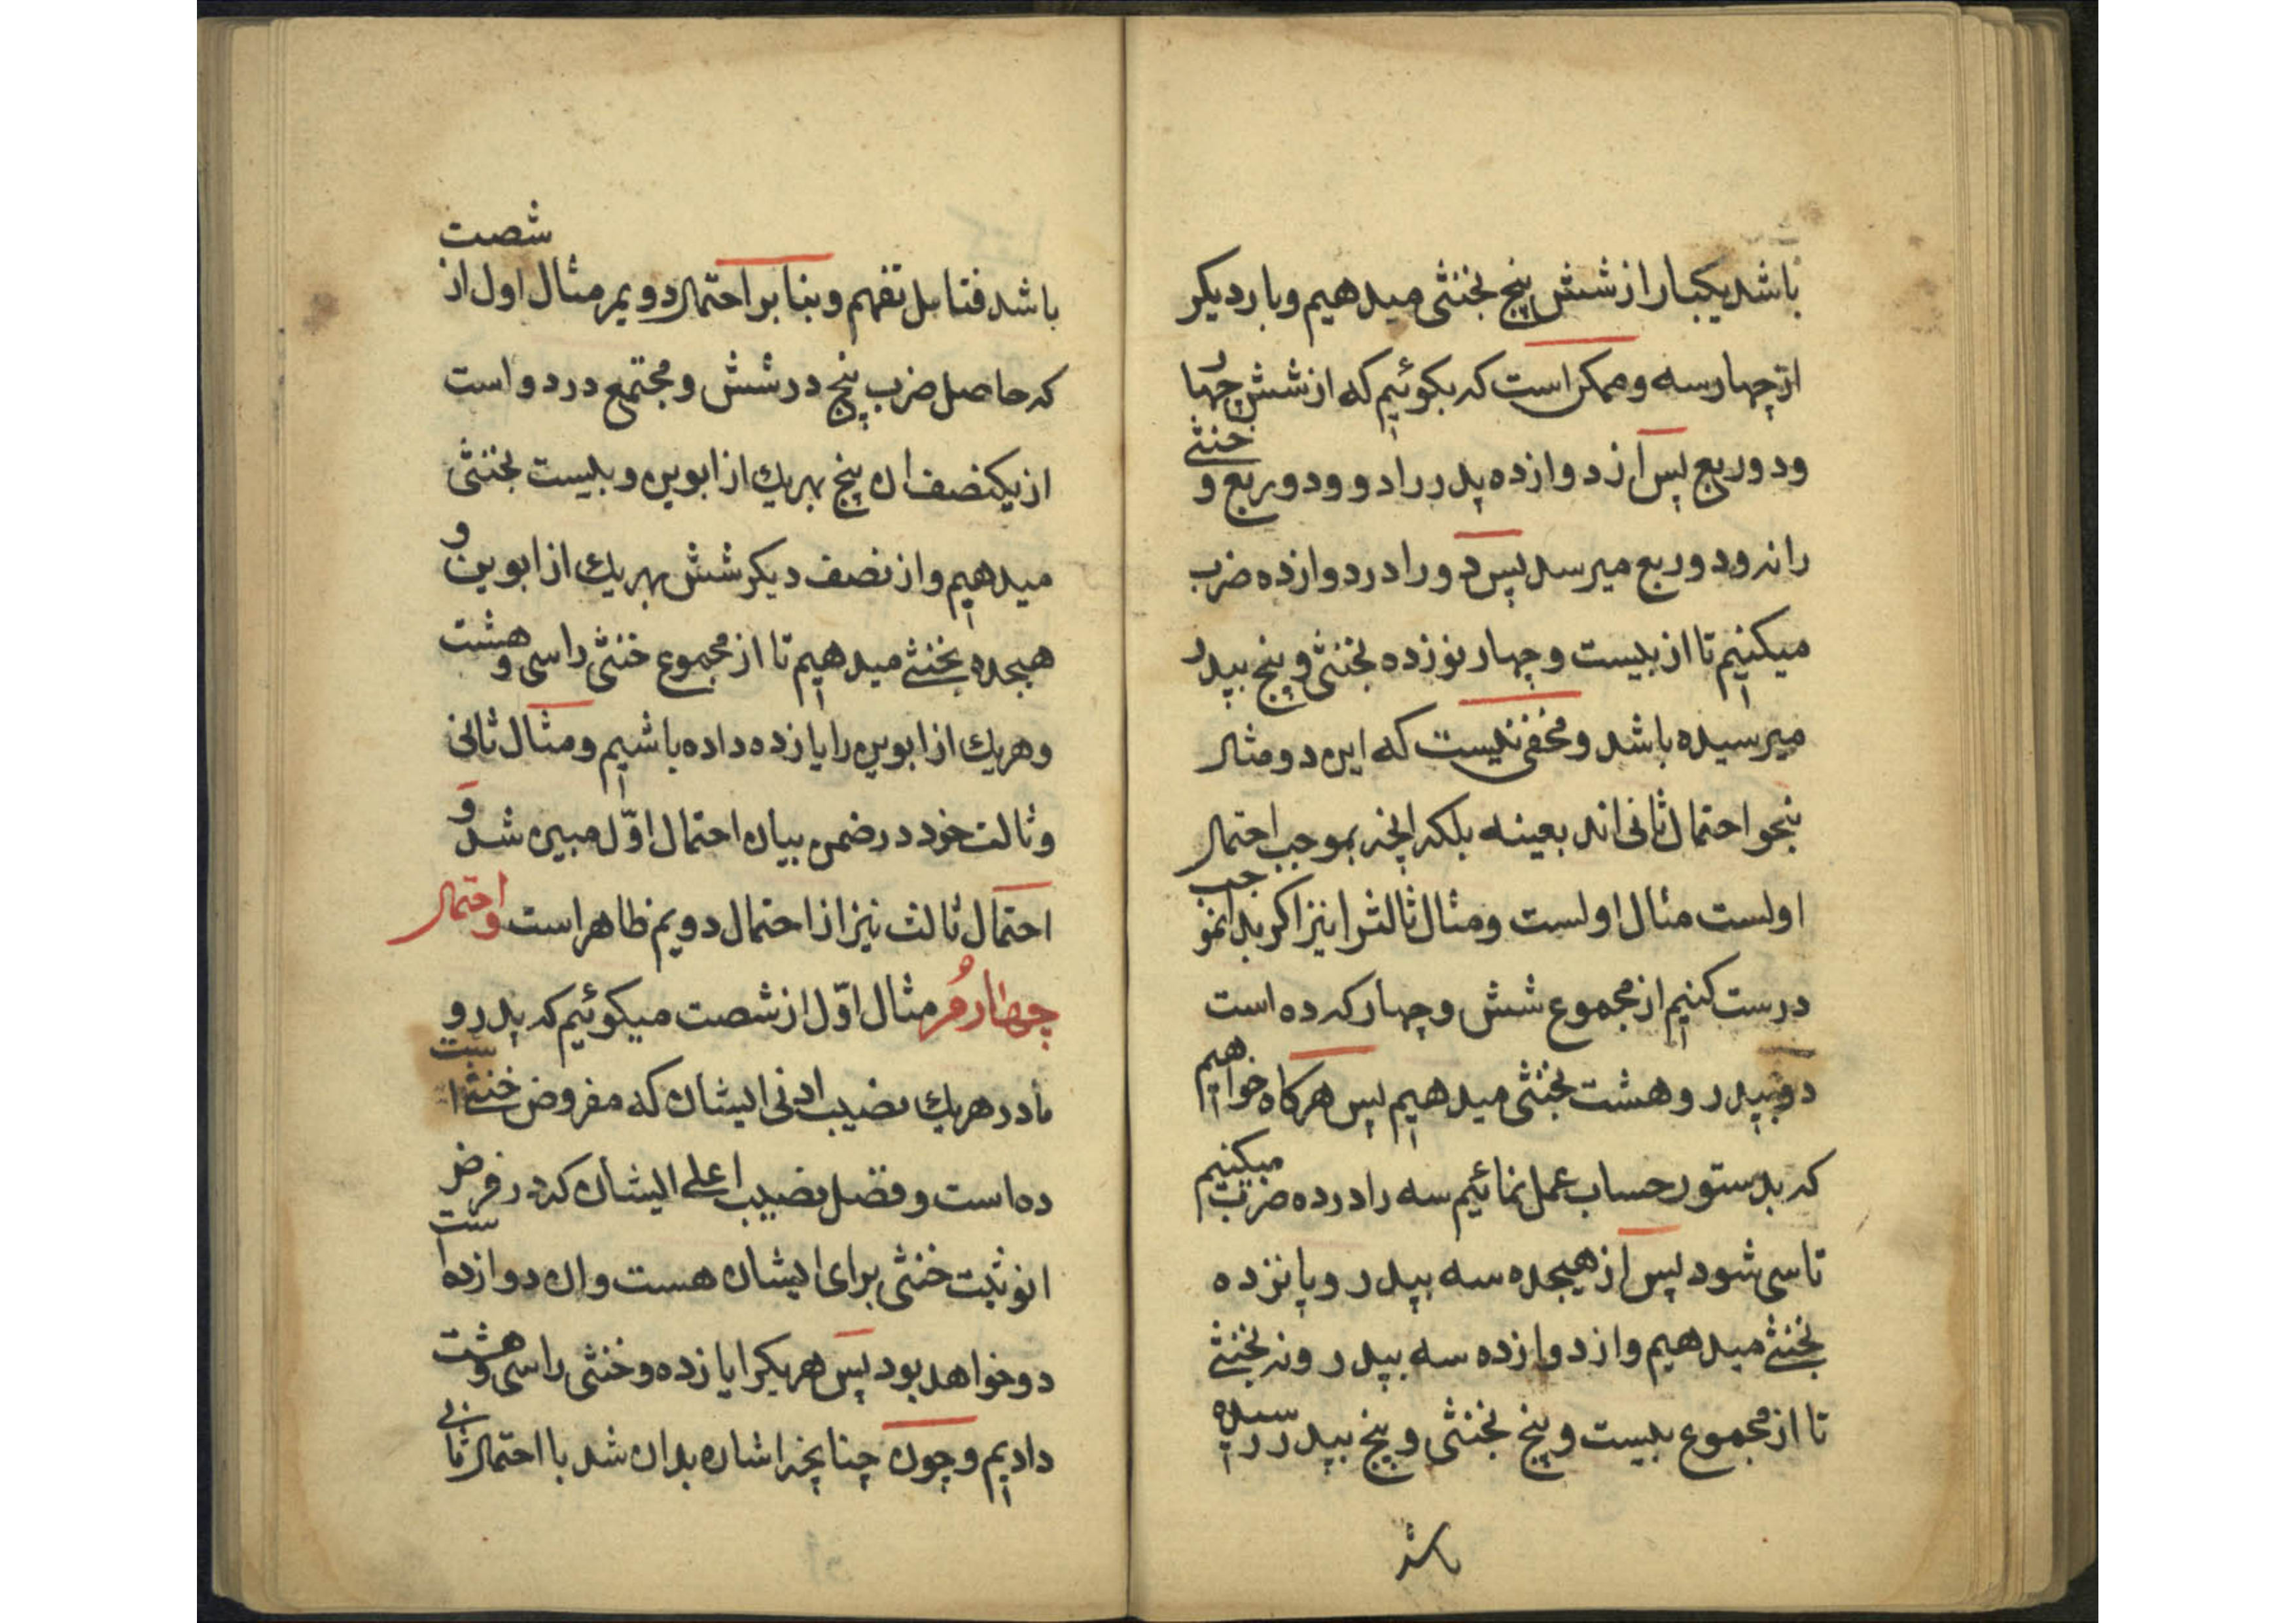 باشد یکبار از شش پنج بخنثی میدهیم و بار دیکر
از چهار سه و ممکن است که بکوئیم که از شش چهار
و دو ربع پس از دوازده پدر را دو و دو ربع و خنثی
را نه و دو ربع میرسد پس دو را در دوازده ضرب
میکنیم تا از بیست و چهار نوزده بخنثی و پنج بپدر
میرسیده باشد و مخفی نیست که این دو مثال
بنحو احتمال ثانی اند بعینه بلکه انچه بموجب احتمال
اولست مثال اولست و مثال ثالث را نیز اکر بدانموجب
درست کنیم از مجموع شش و چهار که ده است
دو بپدر و هشت بخنثی میدهیم پس هرکاه خواهیم
که بدستور حساب عمل نمائیم سه را در ده ضرب میکنیم
تا سی شود پس از هیجده سه بپدر و پانزده
بخنثی میدهیم و از دوازده سه بپدر و نه بخنثی
تا از مجموع بیست و پنج بخنثی و پنج بپدر رسیده
باشد
باشد فتامل تفهم و بنا بر احتمال دویم مثال اول از شصت
که حاصل ضرب پنج در شش و مجتمع در دو است
از یکنصف ان پنج بهریك از ابوین و بیست بخنثی
میدهیم و از نصف دیکر شش بهریك از ابوین و
هیجده بخنثی میدهیم تا از مجموع خنثی را سی و هشت
و هریك از ابوین را یازده داده باشیم و مثال ثانی
و ثالث خود در ضمن بیان احتمال اوّل مبین شد و
احتمال ثالث نیز از احتمال دویم ظاهر است و احتمال
چهارم مثال اوّل از شصت میکوئیم که پدر و
مادر هریك نصیب ادنی ایشان که مفروض خنثی است
ده است و فضل نصیب اعلی ایشان که در فرض
انوثیت خنثی برای ایشان هست و ان دوازده است
دو خواهد بود پس هریکرا یازده و خنثی را سی و هشت
دادیم و چون چنانچه اشاره بدان شد با احتمال ثانی